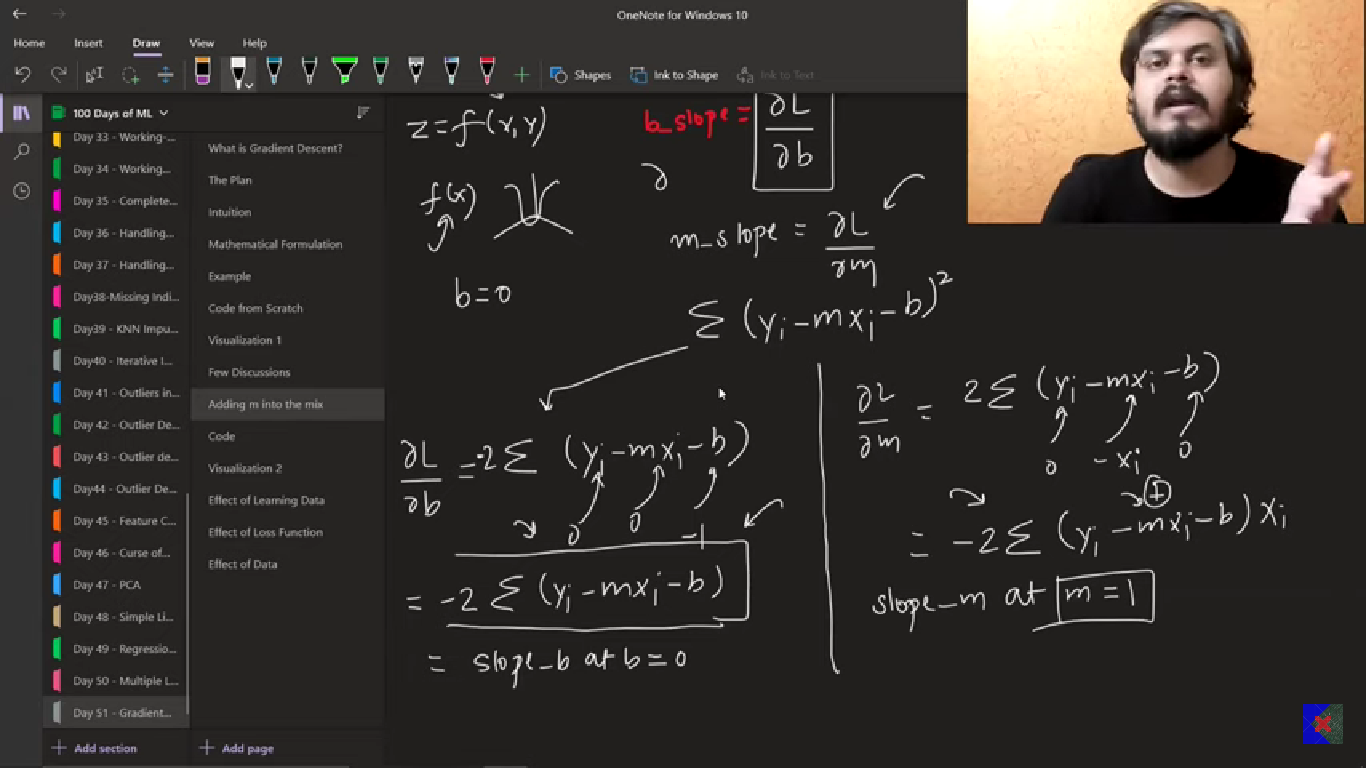 OneNote for Windows 10
Home Insert Draw View Help
Shapes Ink to Shape Ink to Text
100 Days of ML
Day 33 - Working-...
Day 34 - Working...
Day 35 - Complete...
Day 36 - Handling...
Day 37 - Handling...
Day38-Missing Indi...
Day39 - KNN Impu...
Day40 - Iterative I...
Day 41 - Outliers in...
Day 42 - Outlier De...
Day 43 - Outlier de...
Day44 - Outlier De...
Day 45 - Feature C...
Day 46 - Curse of...
Day 47 - PCA
Day 48 - Simple Li...
Day 49 - Regressio...
Day 50 - Multiple L...
Day 51 - Gradient...
Add section
What is Gradient Descent?
The Plan
Intuition
Mathematical Formulation
Example
Code from Scratch
Visualization 1
Few Discussions
Adding m into the mix
Code
Visualization 2
Effect of Learning Data
Effect of Loss Function
Effect of Data
Add page
z = f(x, y)
f(x)
b = 0
b_slope = ∂L/∂b
∂
m_slope = ∂L/∂m
Σ (yi - mxi - b)²
∂L/∂b = -2 Σ (yi - mxi - b)
0 0 -1
= -2 Σ (yi - mxi - b)
= slope_b at b = 0
∂L/∂m = 2 Σ (yi - mxi - b)
0 -xi 0
1
= -2 Σ (yi - mxi - b) xi
slope_m at m = 1